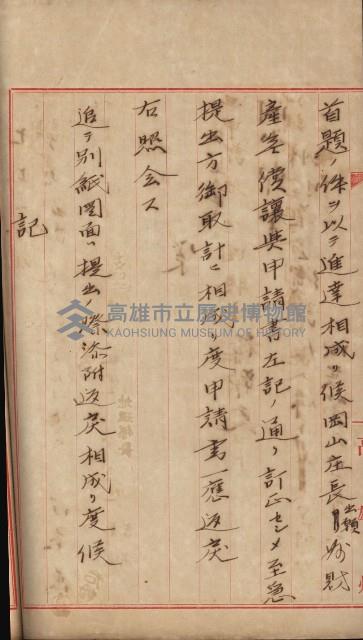 首題ノ件ヲ以テ進達相成リ候岡山庄長出願財
產無償讓與申請書左記ノ通リ訂正セシメ至急
提出方御取計ヒ相成リ度申請書一應返戾
右照会ス
追テ別紙図面ハ提出ノ際添附返戾相成リ度候
記
高雄市立歷史博物館
KAOHSIUNG MUSEUM OF HISTORY
高雄州